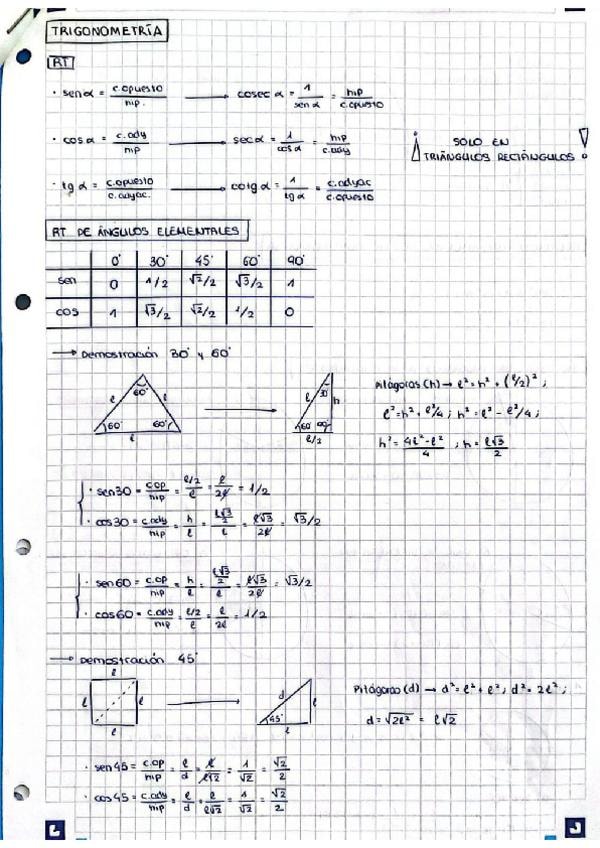 TRIGONOMETRÍA
RT
· sen α = c.opuesto/hip. → cosec α = 1/sen α = hip/c.opuesto
· cos α = c.ady/hip → sec α = 1/cos α = hip/c.ady
¡ SOLO EN TRIÁNGULOS RECTÁNGULOS !
· tg α = c.opuesto/c.adyac. → cotg α = 1/tg α = c.adyac/c.opuesto
RT DE ÁNGULOS ELEMENTALES
0° 30° 45° 60° 90°
sen 0 1/2 √2/2 √3/2 1
cos 1 √3/2 √2/2 1/2 0
→ Demostración 30° y 60°
60° l l 60° 60° l
l 30° h 60° 90° l/2
Pitágoras (h) → l² = h² + (l/2)² ;
l² = h² + l²/4 ; h² = l² - l²/4 ;
h² = 4l² - l²/4 ; h = l√3/2
· sen30 = c.op/hip = l/2/l = l/2l = 1/2
· cos30 = c.ady/hip = h/l = l√3/2/l = l√3/2l = √3/2
· sen60 = c.op/hip = h/l = l√3/2/l = l√3/2l = √3/2
· cos60 = c.ady/hip = l/2/l = l/2l = 1/2
→ Demostración 45°
l l l l
d l 45° l
Pitágoras (d) → d² = l² + l² ; d² = 2l² ;
d = √2l² = l√2
· sen45 = c.op/hip = l/d = l/l√2 = 1/√2 = √2/2
· cos45 = c.ady/hip = l/d = l/l√2 = 1/√2 = √2/2